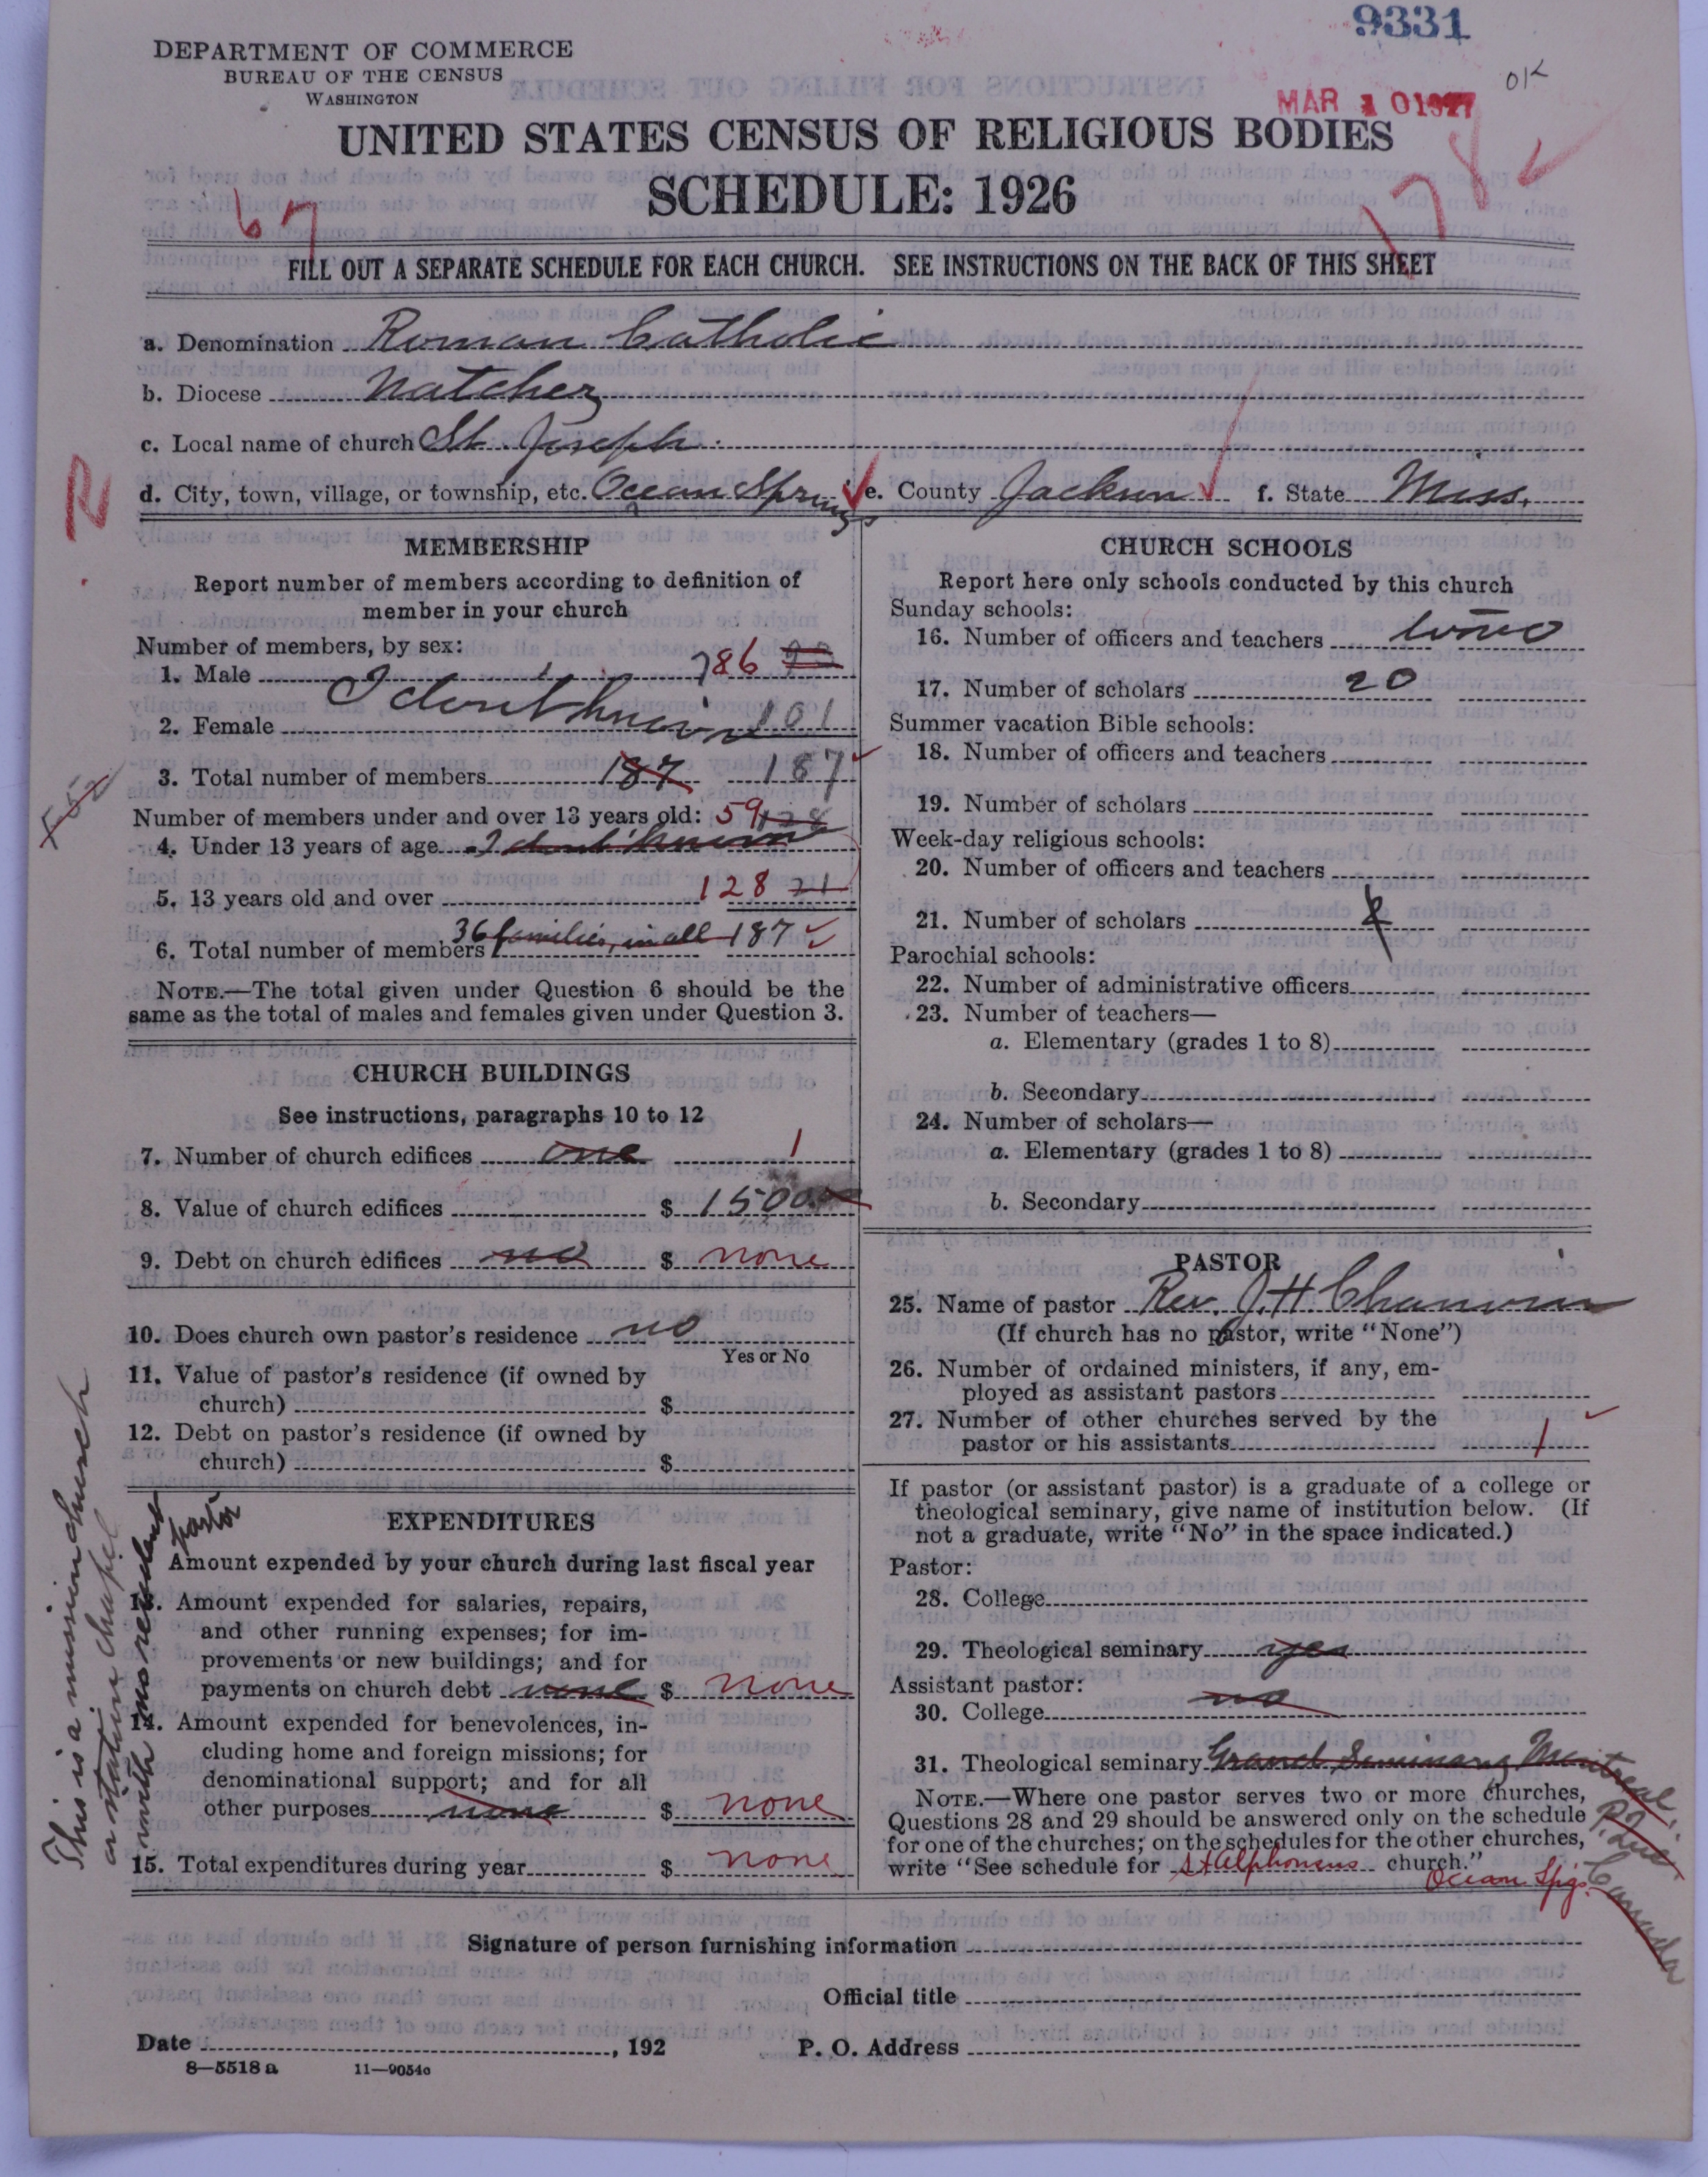 9331
DEPARTMENT OF COMMERCE
BUREAU OF THE CENSUS
WASHINGTON
OK
MAR 10 1927
UNITED STATES CENSUS OF RELIGIOUS BODIES
SCHEDULE: 1926
67
FILL OUT A SEPARATE SCHEDULE FOR EACH CHURCH. SEE INSTRUCTIONS ON THE BACK OF THIS SHEET
a. Denomination Roman Catholic
b. Diocese Natchez
c. Local name of church St. Joseph
d. City, town, village, or township, etc. Ocean Springs e. County Jackson f. State Miss.
MEMBERSHIP
Report number of members according to definition of
member in your church
Number of members, by sex:
1. Male 86
I dont know
2. Female 101
3. Total number of members 187 187
Number of members under and over 13 years old: 59 128
4. Under 13 years of age I dont know
5. 13 years old and over 128 21
6. Total number of members 36 families, in all 187
NOTE.—The total given under Question 6 should be the
same as the total of males and females given under Question 3.
CHURCH BUILDINGS
See instructions, paragraphs 10 to 12
7. Number of church edifices one 1
8. Value of church edifices $ 1500
9. Debt on church edifices no $ none
10. Does church own pastor's residence no
Yes or No
11. Value of pastor's residence (if owned by
church) $
12. Debt on pastor's residence (if owned by
church) $
EXPENDITURES
Amount expended by your church during last fiscal year
13. Amount expended for salaries, repairs,
and other running expenses; for im-
provements or new buildings; and for
payments on church debt none $ none
14. Amount expended for benevolences, in-
cluding home and foreign missions; for
denominational support; and for all
other purposes none $ none
15. Total expenditures during year $ none
This is a mission church
or station chapel
with no resident
pastor
CHURCH SCHOOLS
Report here only schools conducted by this church
Sunday schools:
16. Number of officers and teachers two
17. Number of scholars 20
Summer vacation Bible schools:
18. Number of officers and teachers
19. Number of scholars
Week-day religious schools:
20. Number of officers and teachers
21. Number of scholars
Parochial schools:
22. Number of administrative officers
23. Number of teachers—
a. Elementary (grades 1 to 8)
b. Secondary
24. Number of scholars—
a. Elementary (grades 1 to 8)
b. Secondary
PASTOR
25. Name of pastor Rev. J. H. Chauvin
(If church has no pastor, write "None")
26. Number of ordained ministers, if any, em-
ployed as assistant pastors
27. Number of other churches served by the
pastor or his assistants 1
If pastor (or assistant pastor) is a graduate of a college or
theological seminary, give name of institution below. (If
not a graduate, write "No" in the space indicated.)
Pastor:
28. College
29. Theological seminary yes
Assistant pastor:
30. College no
31. Theological seminary Grand Seminary Montreal
Canada
NOTE.—Where one pastor serves two or more churches,
Questions 28 and 29 should be answered only on the schedule
for one of the churches; on the schedules for the other churches,
write "See schedule for St Alphonsus church."
Ocean Spgs.
Signature of person furnishing information
Official title
Date , 192 P. O. Address
8—5518 a 11—9054c